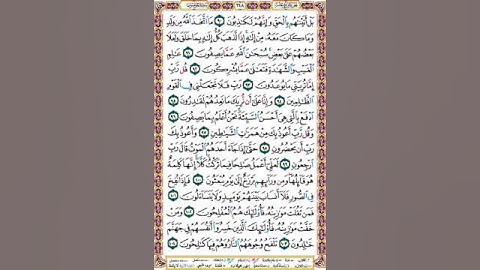 بَلْ أَتَيْنَٰهُم بِٱلْحَقِّ وَإِنَّهُمْ لَكَٰذِبُونَ ٩٠ مَا ٱتَّخَذَ ٱللَّهُ مِن وَلَدٍ
وَمَا كَانَ مَعَهُۥ مِنْ إِلَٰهٍ إِذًا لَّذَهَبَ كُلُّ إِلَٰهٍۭ بِمَا خَلَقَ وَلَعَلَا
بَعْضُهُمْ عَلَىٰ بَعْضٍ سُبْحَٰنَ ٱللَّهِ عَمَّا يَصِفُونَ ٩١ عَٰلِمِ
ٱلْغَيْبِ وَٱلشَّهَٰدَةِ فَتَعَٰلَىٰ عَمَّا يُشْرِكُونَ ٩٢ قُل رَّبِّ
إِمَّا تُرِيَنِّي مَا يُوعَدُونَ ٩٣ رَبِّ فَلَا تَجْعَلْنِي فِي ٱلْقَوْمِ
ٱلظَّٰلِمِينَ ٩٤ وَإِنَّا عَلَىٰٓ أَن نُّرِيَكَ مَا نَعِدُهُمْ لَقَٰدِرُونَ ٩٥
ٱدْفَعْ بِٱلَّتِي هِيَ أَحْسَنُ ٱلسَّيِّئَةَ نَحْنُ أَعْلَمُ بِمَا يَصِفُونَ ٩٦
وَقُل رَّبِّ أَعُوذُ بِكَ مِنْ هَمَزَٰتِ ٱلشَّيَٰطِينِ ٩٧ وَأَعُوذُ بِكَ
رَبِّ أَن يَحْضُرُونِ ٩٨ حَتَّىٰٓ إِذَا جَآءَ أَحَدَهُمُ ٱلْمَوْتُ قَالَ رَبِّ
ٱرْجِعُونِ ٩٩ لَعَلِّيٓ أَعْمَلُ صَٰلِحًا فِيمَا تَرَكْتُ كَلَّآ إِنَّهَا كَلِمَةٌ
هُوَ قَآئِلُهَا وَمِن وَرَآئِهِم بَرْزَخٌ إِلَىٰ يَوْمِ يُبْعَثُونَ ١٠٠ فَإِذَا نُفِخَ
فِي ٱلصُّورِ فَلَآ أَنسَابَ بَيْنَهُمْ يَوْمَئِذٍ وَلَا يَتَسَآءَلُونَ ١٠١
فَمَن ثَقُلَتْ مَوَٰزِينُهُۥ فَأُو۟لَٰٓئِكَ هُمُ ٱلْمُفْلِحُونَ ١٠٢ وَمَنْ
خَفَّتْ مَوَٰزِينُهُۥ فَأُو۟لَٰٓئِكَ ٱلَّذِينَ خَسِرُوٓا۟ أَنفُسَهُمْ فِي جَهَنَّمَ
خَٰلِدُونَ ١٠٣ تَلْفَحُ وُجُوهَهُمُ ٱلنَّارُ وَهُمْ فِيهَا كَٰلِحُونَ ١٠٤